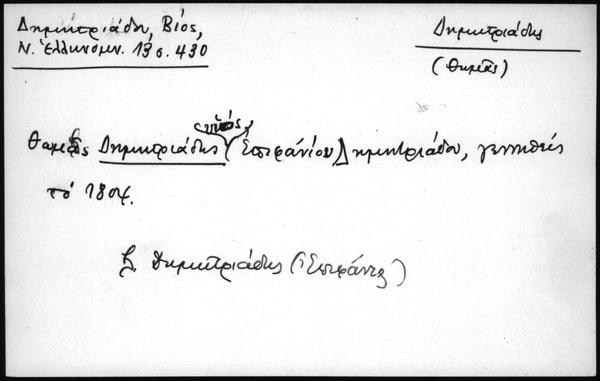 Δημητριάδου, Βίος,
Ν. Ἑλληνομν. 13 σ. 430
Δημητριάδης
(Θωμᾶς)
Θωμᾶς Δημητριάδης (υἱός, Ἐπιφανίου) Δημητριάδου, γεννηθείς
τό 1804.
β. Δημητριάδης (Ἐπιφάνιος)